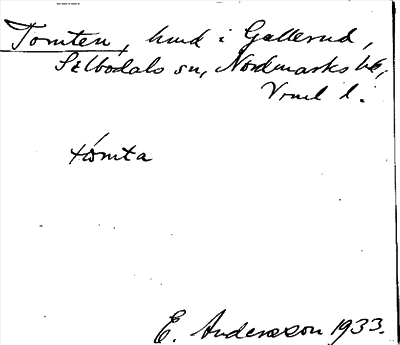 Tomten, hmd i Gallerud,
Silbodals sn, Nordmarks hd,
Vrml l.
tómta
E. Andersson 1933.